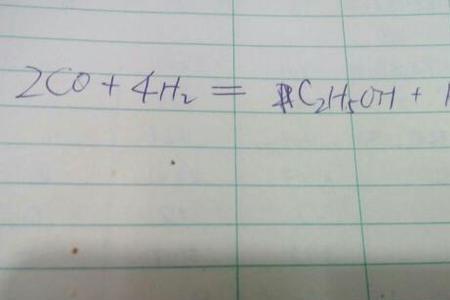 2CO + 4H₂ = C₂H₅OH +